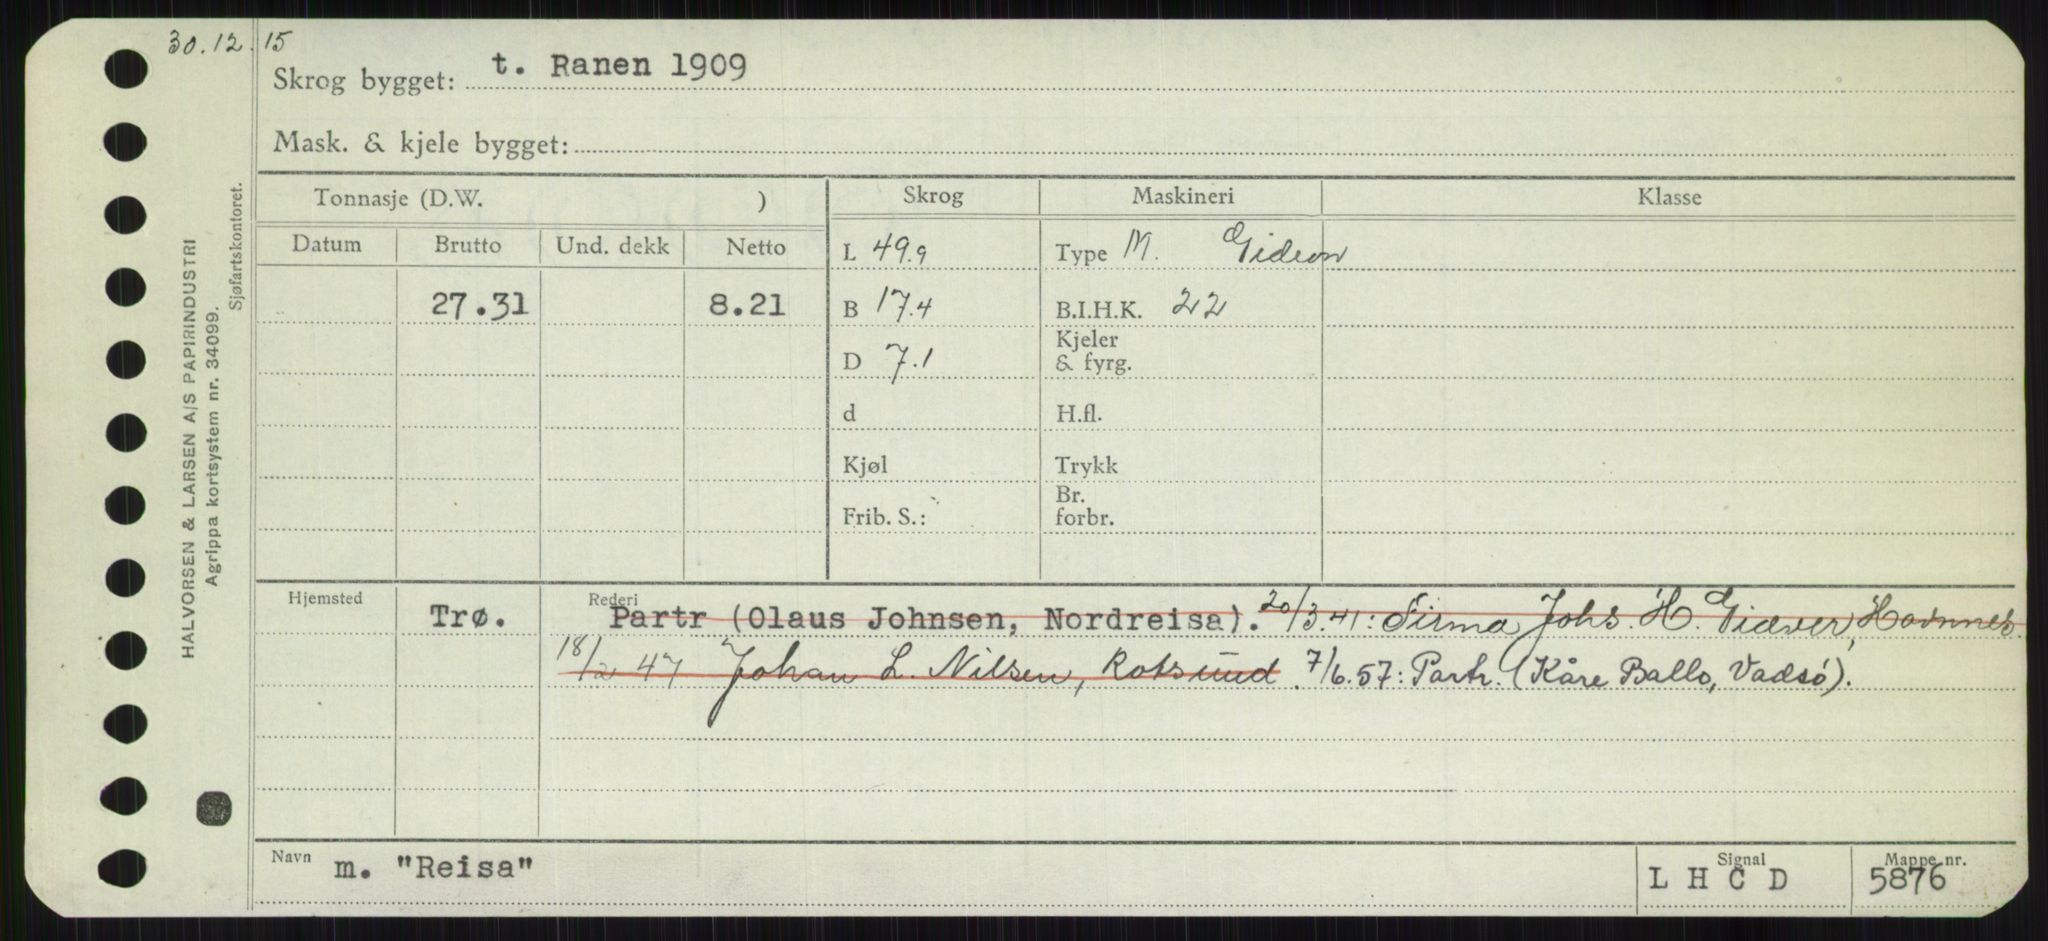 30.12.15
Skrog bygget: t. Ranen 1909
Mask. & kjele bygget:
Tonnasje (D.W. ) Skrog Maskineri Klasse
Datum Brutto Und. dekk Netto L 49.9 Type M. Gideon
27.31 8.21 B 17.4 B.I.H.K. 22
D 7.1 Kjeler & fyrg.
d H.fl.
Kjøl Trykk
Frib. S.: Br. forbr.
Hjemsted Trø. Rederi Partr (Olaus Johnsen, Nordreisa). 20/3.41: Firma Johs. H. Giæver, Havnnes.
18/2 47 Johan L. Nilsen, Rotsund. 7/6.57: Partr. (Kåre Ballo, Vadsö).
Navn m. "Reisa" Signal L H C D Mappe nr. 5876
HALVORSEN & LARSEN A/S PAPIRINDUSTRI
Agrippa kortsystem nr. 34099.
Sjøfartskontoret.